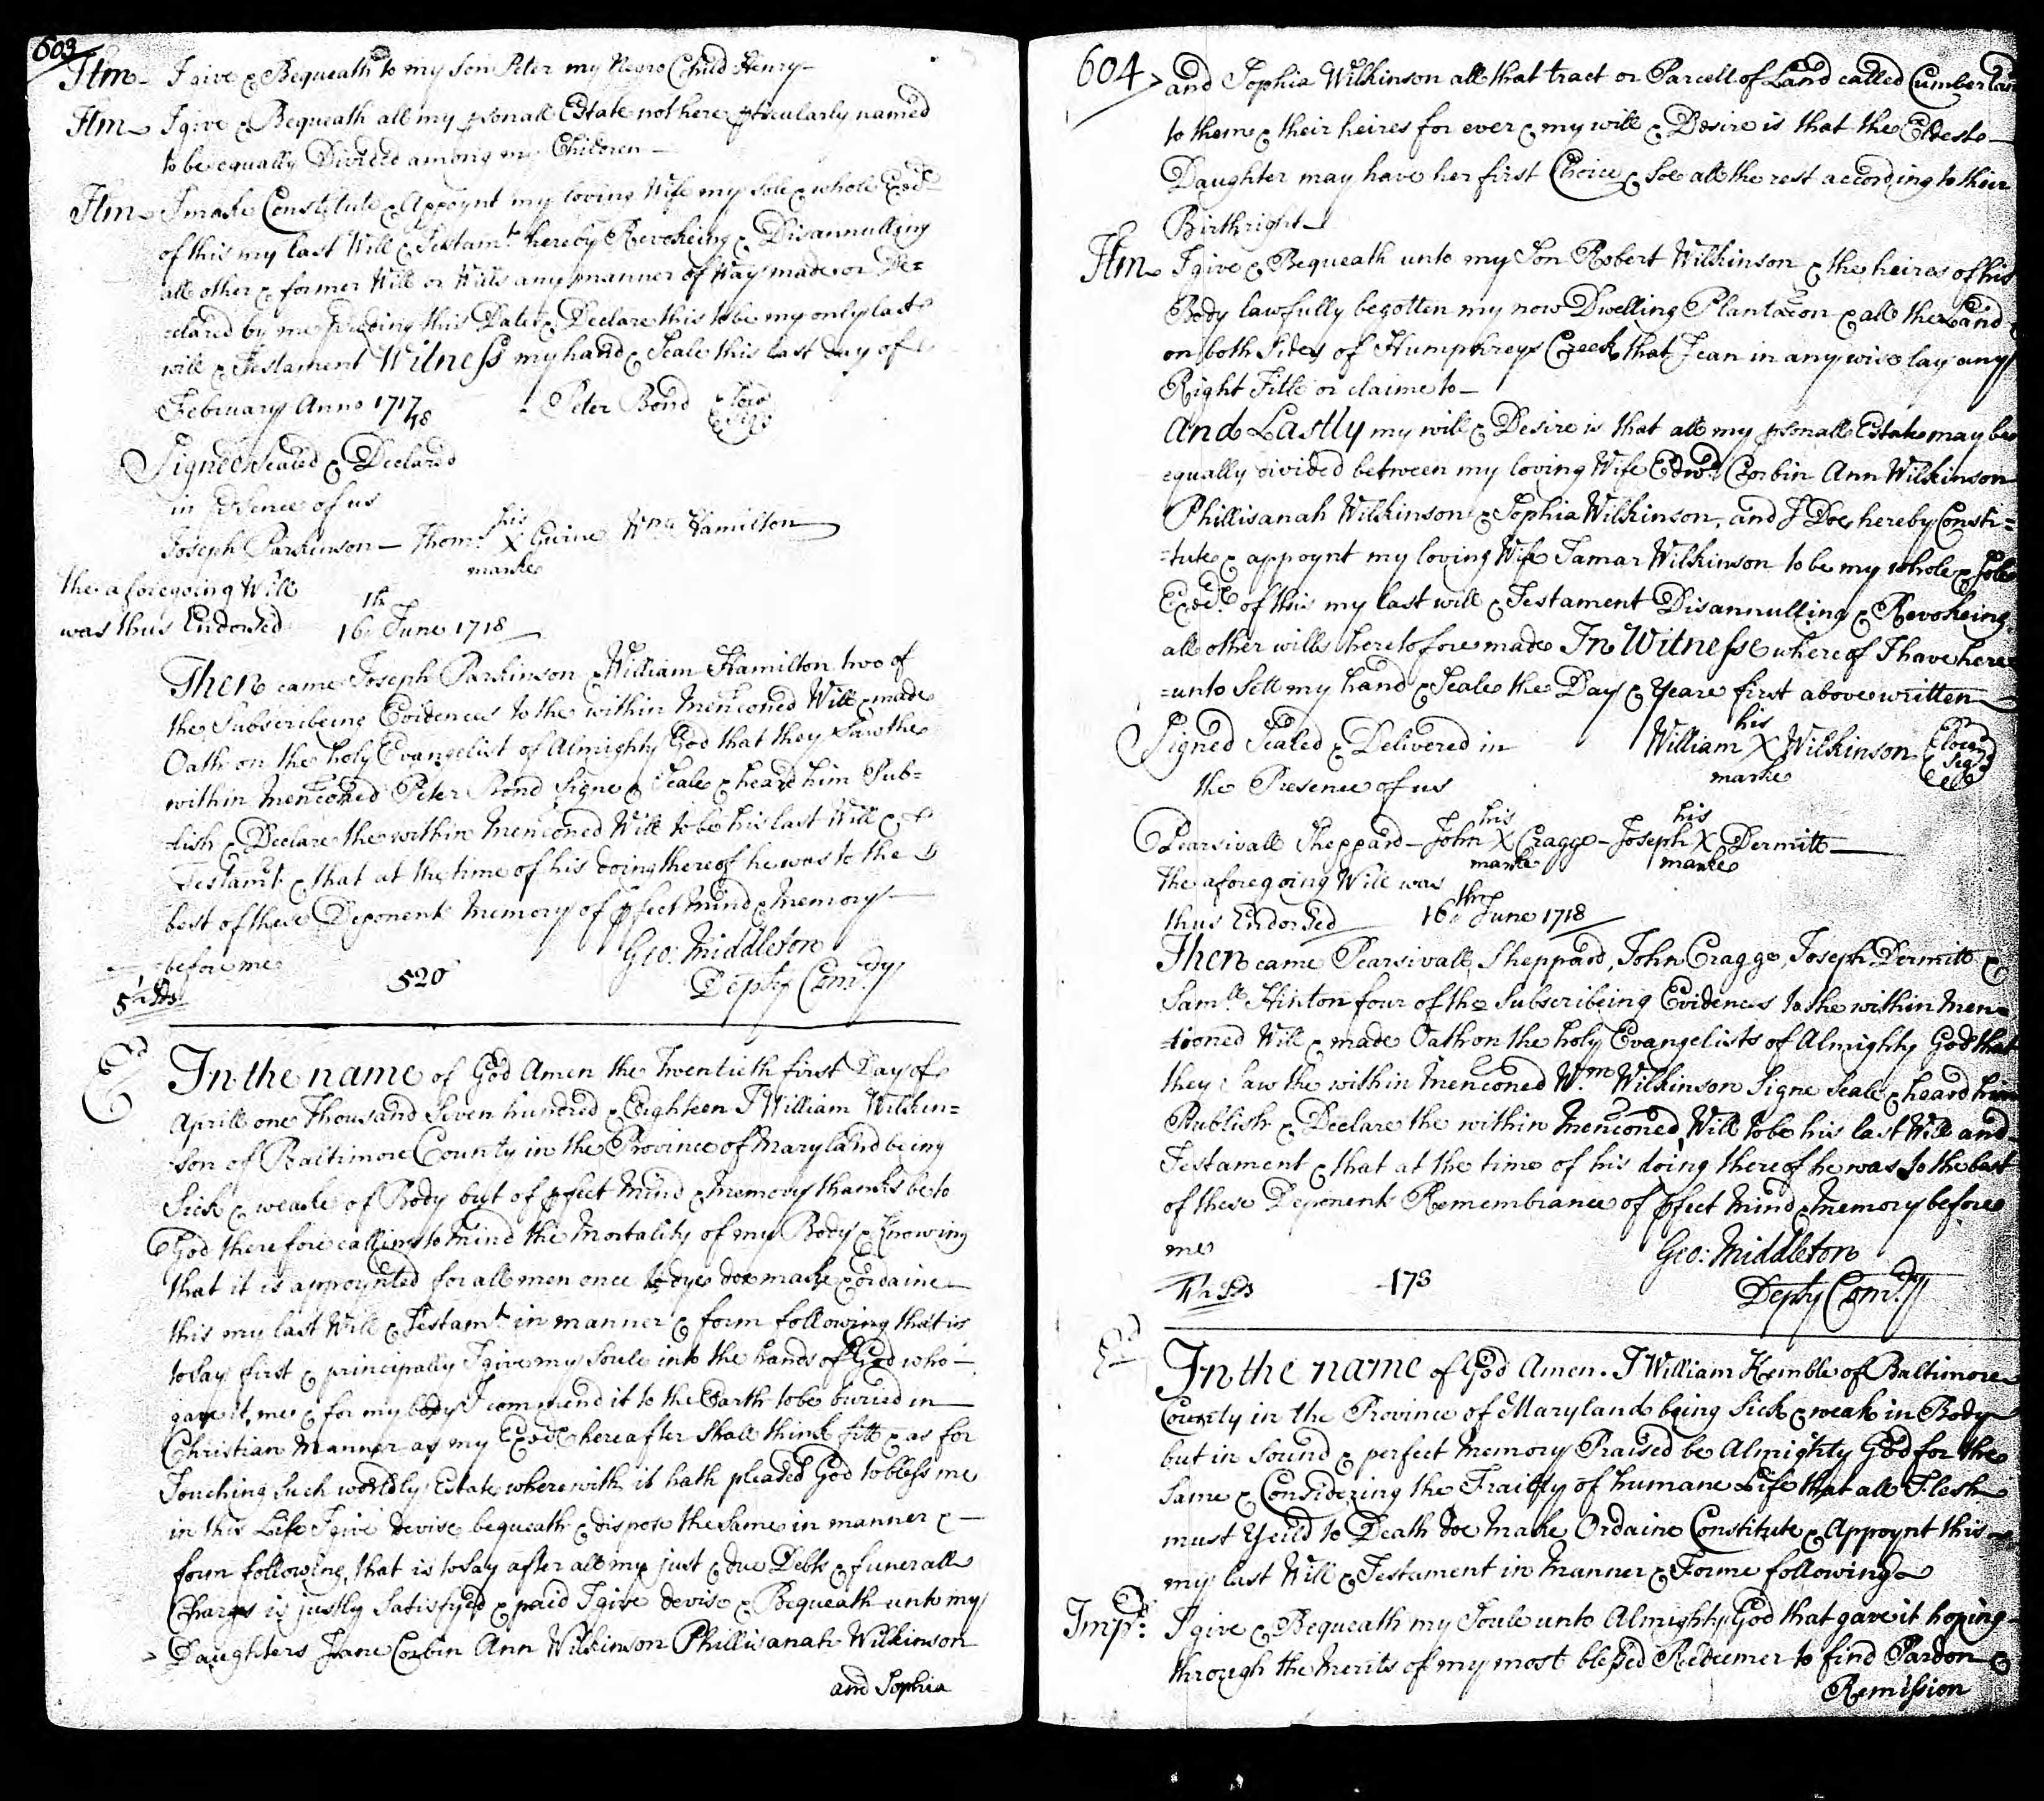 603
Itm - I give & Bequeath to my Son Peter my Negro Child Henry -
Itm - I give & Bequeath all my psonall Estate not here pticularly named
to be equally Divided among my Children -
Itm - I make Constitute & Appoynt my loving Wife my sole & whole Exec.
of this my last Will & Testamt. hereby Revokeing & Disannulling
all other & former Will or Wills any manner of Way made or De=
clared by me preceding this Date & Declare this to be my only last
will & Testament Witness my hand & Seale this last day of
February Anno 1717/18 - Peter Bond
Signed Sealed & Declared
in psence of us
Joseph Parkinson - Thom.s his X marke Guine Wm. Hamilton
the aforegoing Will
was thus Endorsed 16th June 1718
Then came Joseph Parkinson & William Hamilton two of
the Subscribeing Evidences to the within Menconed Will & made
Oath on the holy Evangelist of Almighty God that they Saw the
within Menconed Peter Bond Signe & Seale & heard him Pub=
lish & Declare the within Menconed Will to be his last Will &
Testamt. & that at the time of his doing thereof he was to the
best of these Deponents Memory of pfect Mind & Memory -
before me Geo: Middleton
520 Depty Com.ry
In the name of God Amen the Twentieth first Day of
Aprill one Thousand Seven hundred & Eighteen I William Wilkin=
son of Baltimore County in the Province of Maryland being
Sick & weake of Body but of pfect Mind & Memory thanks be to
God therefore calling to Mind the Mortality of my Body & Knowing
that it is appoynted for all men once to dye doe make & ordaine
this my last Will & Testamt. in manner & form following that is
to Say first & principally I give my Soule into the hands of God who -
gave it me & for my body I commend it to the Earth to be buried in
Christian Manner as my Exec. hereafter Shall think fitt & as for
Touching Such worldly Estate wherewith it hath pleased God to bless me
in this Life I give devise bequeath & dispose the Same in manner & -
form following, that is to Say after all my just & due Debts & funerall
Charges is justly Satisfyed & paid I give devise & Bequeath unto my
Daughters Jane Corbin Ann Wilkinson Phillisanah Wilkinson
and Sophia
604
and Sophia Wilkinson all that tract or Parcell of Land called Cumberland
to them & their heires for ever & my will & Desire is that the Eldest
Daughter may have her first Choice & Soe all the rest according to their
Birthright -
Itm - I give & Bequeath unto my Son Robert Wilkinson & the heires of his
Body lawfully begotten my now Dwelling Plantacon & all the Land
on both Sides of Humphreys Creek that I can in any wise lay any
Right Title or claime to -
And Lastly my will & Desire is that all my psonall Estate may be
equally divided between my loving Wife Edwd. Corbin Ann Wilkinson
Phillisanah Wilkinson & Sophia Wilkinson, and I Doe hereby Consti=
=tute & appoynt my loving Wife Tamar Wilkinson to be my whole & Sole
Exec. of this my last will & Testament Disannulling & Revokeing
all other wills heretofore made In Witness whereof I have here
=unto Sett my hand & Seale the Day & Yeare first above written -
Signed Sealed & Delivered in William his X marke Wilkinson
the Presence of us
Pearsivall Sheppard - John his X marke Cragge - Joseph his X marke Dermitt -
The aforegoing Will was
thus Endorsed 16th June 1718
Then came Pearsivall Sheppard, John Cragge, Joseph Dermitt &
Samll. Hinton four of the Subscribeing Evidences to the within Men=
=tioned Will & made Oath on the holy Evangelists of Almighty God that
they Saw the within Menconed Wm. Wilkinson Signe Seale & heard him
Publish & Declare the within Menconed Will to be his last Will and
Testament & that at the time of his doing thereof he was to the best
of these Deponents Remembrance of pfect Mind & Memory before
me Geo: Middleton
173 Depty Com.ry
In the name of God Amen. I William Kemble of Baltimore
County in the Province of Maryland being Sick & weak in Body
but in Sound & perfect Memory Praised be Almighty God for the
Same & Considering the Frailty of humane Life that all Flesh
must Yeild to Death doe Make Ordaine Constitute & Appoynt this
my last Will & Testament in Manner & Forme following
Impr. I give & Bequeath my Soule unto Almighty God that gave it hoping
through the Merits of my most blessed Redeemer to find Pardon &
Remission